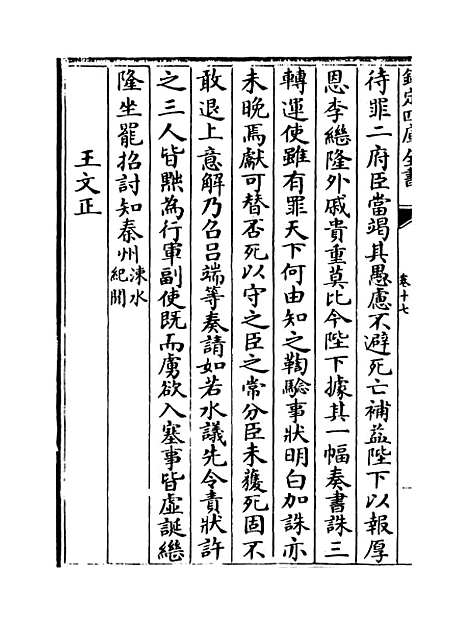 欽定四庫全書
卷十七
待罪二府臣當竭其愚慮不避死亡補益陛下以報厚
恩李繼隆外戚貴重莫比今陛下據其一幅奏書誅三
轉運使雖有罪天下何由知之鞫驗事狀明白加誅亦
未晚焉獻可替否死以守之臣之常分臣未獲死固不
敢退上意解乃召吕端等奏請如若水議先令責狀許
之三人皆黜為行軍副使既而虜欲入塞事皆虛誕繼
隆坐罷招討知秦州涑水
紀聞
王文正